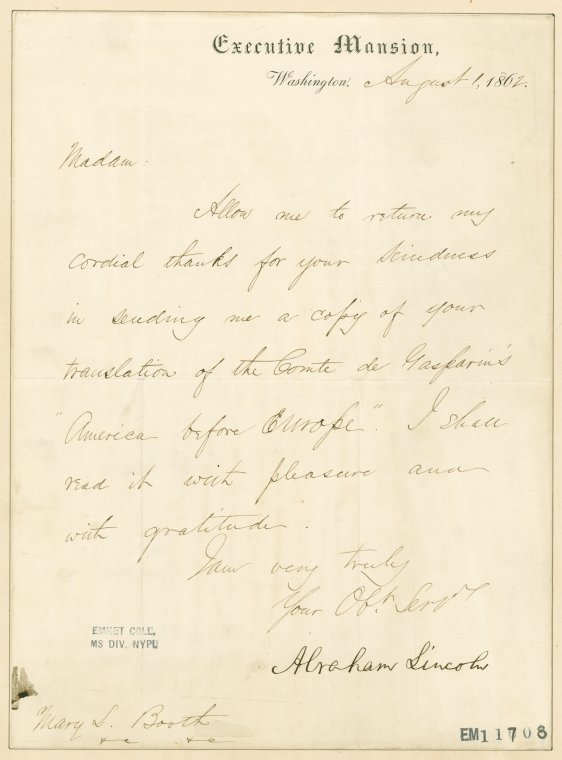 Executive Mansion,
Washington, August 1, 1862.
Madam:
Allow me to return my
cordial thanks for your kindness
in sending me a copy of your
translation of the Comte de Gasparin's
"America before Europe". I shall
read it with pleasure and
with gratitude.
I am very truly
Your Obt. Servt.
Abraham Lincoln
EMMET COLL,
MS DIV. NYPL
Mary L. Booth
&c &c
EM11708